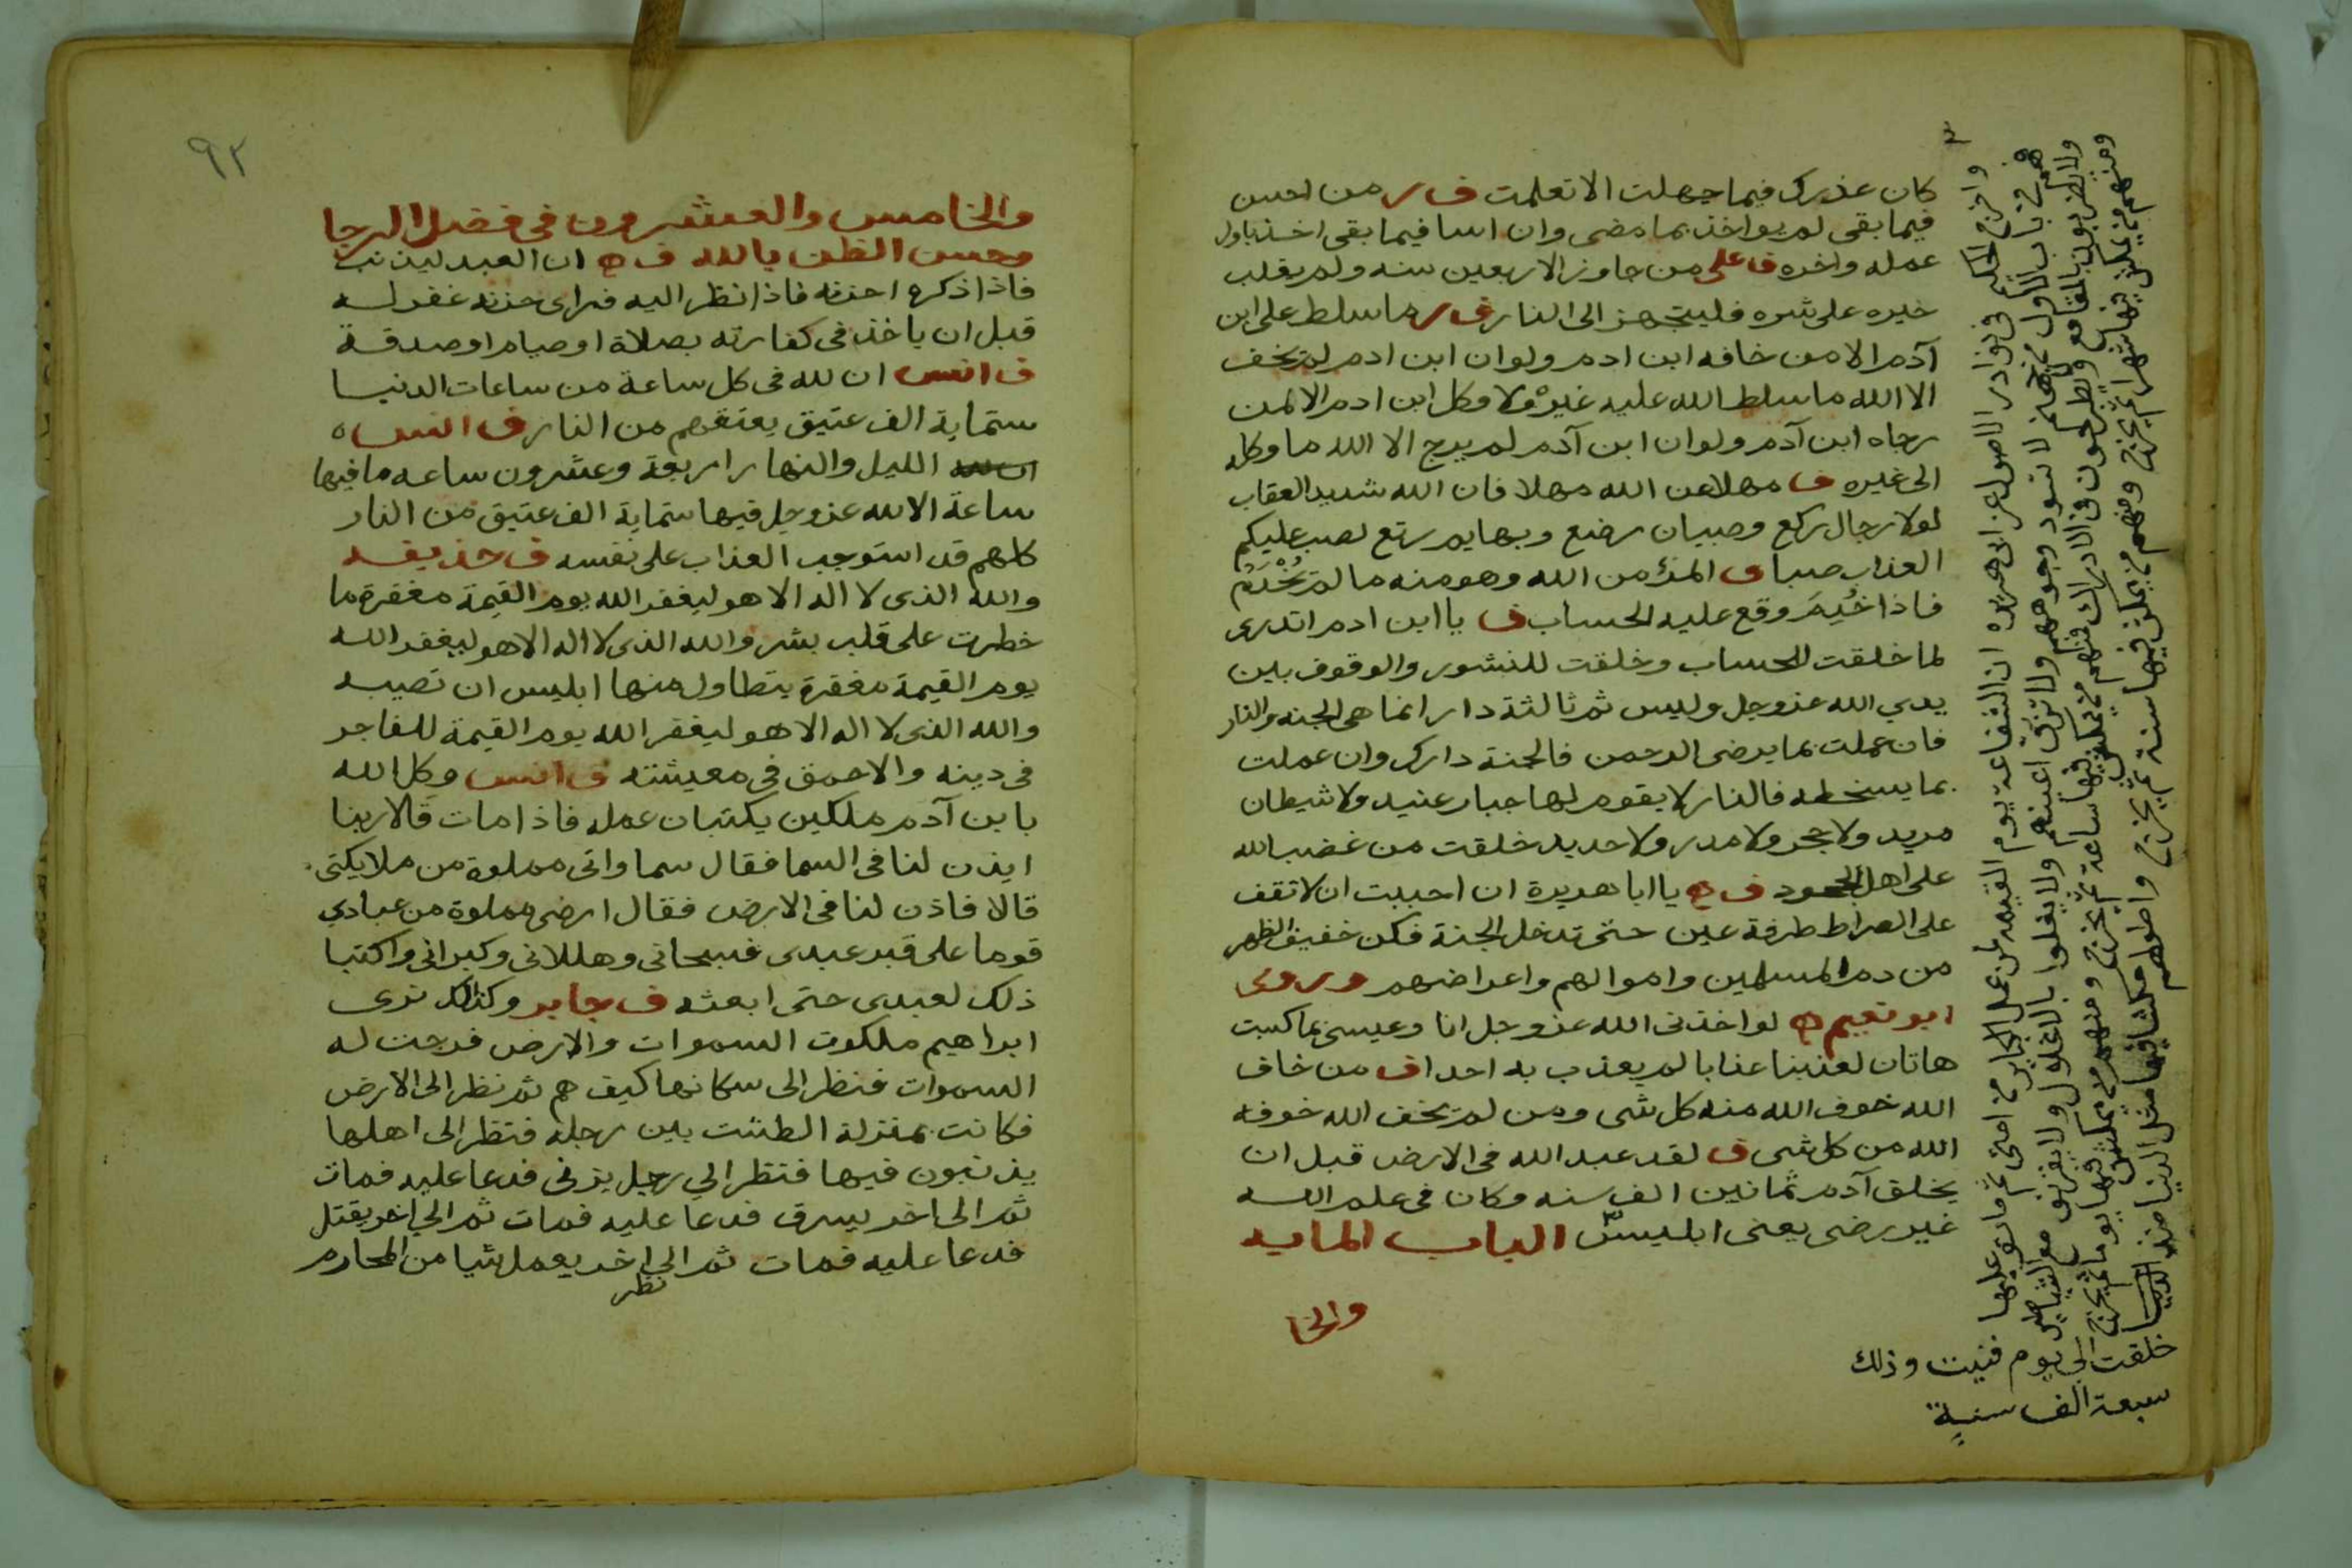 كان عذرك فيما جهلت الا تعلمت ف ر من احسن
فيما بقى لم يواخذ بما مضى وان اسا فيما بقى اخذ باول
عمله واخره ف على من جاوز الاربعين سنه ولم يغلب
خيره على شره فليتجهز الى النار ف ر ما سلط على ابن
آدم الا من خافه ابن ادم ولو ان ابن ادم لم يخف
الا الله ما سلط الله عليه غيره ولا وكل ابن ادم الا لمن
رجاه ابن آدم ولو ان ابن آدم لم يرج الا الله ما وكله
الى غيره ف مهلا عن الله مهلا فان الله شديد العقاب
لولا رجال ركع وصبيان رضع وبهايم رتع لصب عليكم
العذاب صبا ف المؤمن من الله وهو منه ما لم يُخْدَم
فاذا خُدِمَ وقع عليه الحساب ف يا ابن ادم اتدرى
لما خلقت للحساب وخلقت للنشور والوقوف بين
يدي الله عز وجل وليس ثم ثالثة دار انما هى الجنه والنار
فان عملت بما يرضى الرحمن فالجنة دارك وان عملت
بما يسخطه فالنار لا يقوم لها جبار عنيد ولا شيطان
مريد ولا حجر ولا مدر ولا حديد خلقت من غضب الله
على اهل الجحود ف ه يا ابا هريرة ان احببت ان لا تقف
على الصراط طرفة عين حتى تدخل الجنة فكن خفيف الظهر
من دم المسلمين واموالهم واعراضهم وروى
ابو نعيم ه لو اخذنى الله عز وجل انا وعيسى بما كسبت
هاتان لعذبنا عذابا لم يعذب به احدا ف من خاف
الله خوف الله منه كل شى ومن لم يخف الله خوفه
الله من كل شى ف لقد عبد الله فى الارض قبل ان
يخلق آدم ثمانين الف سنه وكان فى علم الله
غير رضى يعنى ابليسّ الباب المايه
والخا
واخرج الحكيم فى نوادر الاصول عن ابى هريره ان الشفاعه يوم القيمه لمن عمل الكباير من امتى ثم ماتوا عليها
هم فى باب الاول من جهنم لا تسود وجوههم ولا تزرق اعينهم ولا يغلوا بالاغلول ولا يقرنون مع الشياطين
ولا يضربون بالمقامع ولا يطرحون فى الادراك منهم من يمكث فيها ساعة ثم يخرج ومنهم من يمكث فيها يوما ثم يخرج
ومنهم من يمكث فيها شهرا ثم يخرج ومنهم من يمكث فيها سنة ثم يخرج واطولهم مكثا فيها مثل الدنيا منذ
خلقت الى يوم فنيت وذلك
سبعة الف سنةٍ
٩٢
والخامس والعشرون فى فضل الرجا
وحسن الظن بالله ف ه ان العبد ليذنب
فاذا ذكره احزنه فاذا نظر اليه فراى حزنه غفر له
قبل ان ياخذ فى كفارته بصلاة او صيام او صدقة
ف انس ان لله فى كل ساعة من ساعات الدنيا
ستماية الف عتيق يعتقهم من النار ف انس ه
ان لله الليل والنهار اربعة وعشرون ساعه ما فيها
ساعة الا لله عز وجل فيها ستماية الف عتيق من النار
كلهم قد استوجب العذاب على نفسه ف حذيفه
والله الذى لا اله الا هو ليغفر الله يوم القيمة مغفرة ما
خطرت على قلب بشر والله الذى لا اله الا هو ليغفر الله
يوم القيمة مغفرة يتطاول منها ابليس ان تصيبه
والله الذى لا اله الا هو ليغفر الله يوم القيمة للفاجر
فى دينه والاحمق فى معيشته ف انس وكل الله
بابن آدم ملكين يكتبان عمله فاذا مات قالا ربنا
ايذن لنا فى السما فقال سماواتى مملوة من ملايكتى
قالا فاذن لنا فى الارض فقال ارضى مملوة من عبادي
قوما على قبر عبدى فسبحانى وهللانى وكبرانى واكتبا
ذلك لعبدى حتى ابعثه ف جابر وكذلك نرى
ابراهيم ملكوت السموات والارض فرجت له
السموات فنظر الى سكانها كيف هم ثم نظر الى الارض
فكانت بمنزلة الطشت بين رجليه فنظر الى اهلها
يذنبون فيها فنظر الي رجل يزنى فدعا عليه فمات
ثم الى اخر يسرق فدعا عليه فمات ثم الي اخر يقتل
فدعا عليه فمات ثم الي اخر يعمل شيا من المحارم
نظر